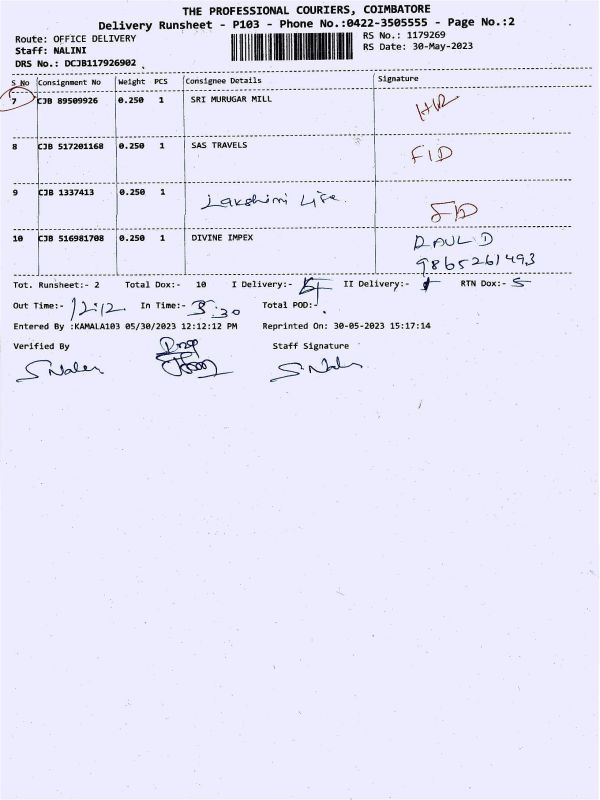 THE PROFESSIONAL COURIERS, COIMBATORE
Delivery Runsheet - P103 - Phone No.:0422-3505555 - Page No.:2
Route: OFFICE DELIVERY RS No.: 1179269
Staff: NALINI RS Date: 30-May-2023
DRS No.: DCJB117926902
S No Consignment No Weight PCS Consignee Details Signature
7 CJB 89509926 0.250 1 SRI MURUGAR MILL
8 CJB 517201168 0.250 1 SAS TRAVELS FID
9 CJB 1337413 0.250 1 Lakshmi Life FID
10 CJB 516981708 0.250 1 DIVINE IMPEX
9865261493
Tot. Runsheet:- 2 Total Dox:- 10 I Delivery:- II Delivery:- RTN Dox:- 5
Out Time:- 12:12 In Time:- 3.30 Total POD:-
Entered By :KAMALA103 05/30/2023 12:12:12 PM Reprinted On: 30-05-2023 15:17:14
Verified By Staff Signature